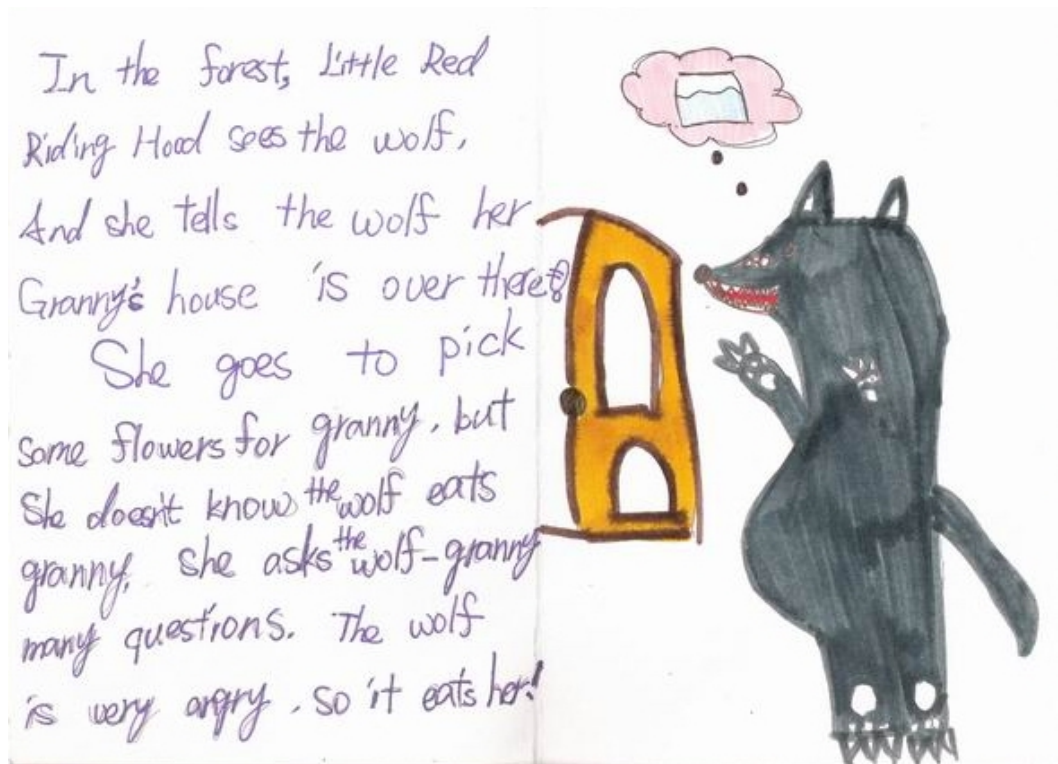 In the forest, Little Red
Riding Hood sees the wolf,
And she tells the wolf her
Granny's house is over there!
She goes to pick
some flowers for granny, but
She doesn't know the wolf eats
granny. She asks the wolf-granny
many questions. The wolf
is very angry, so it eats her!